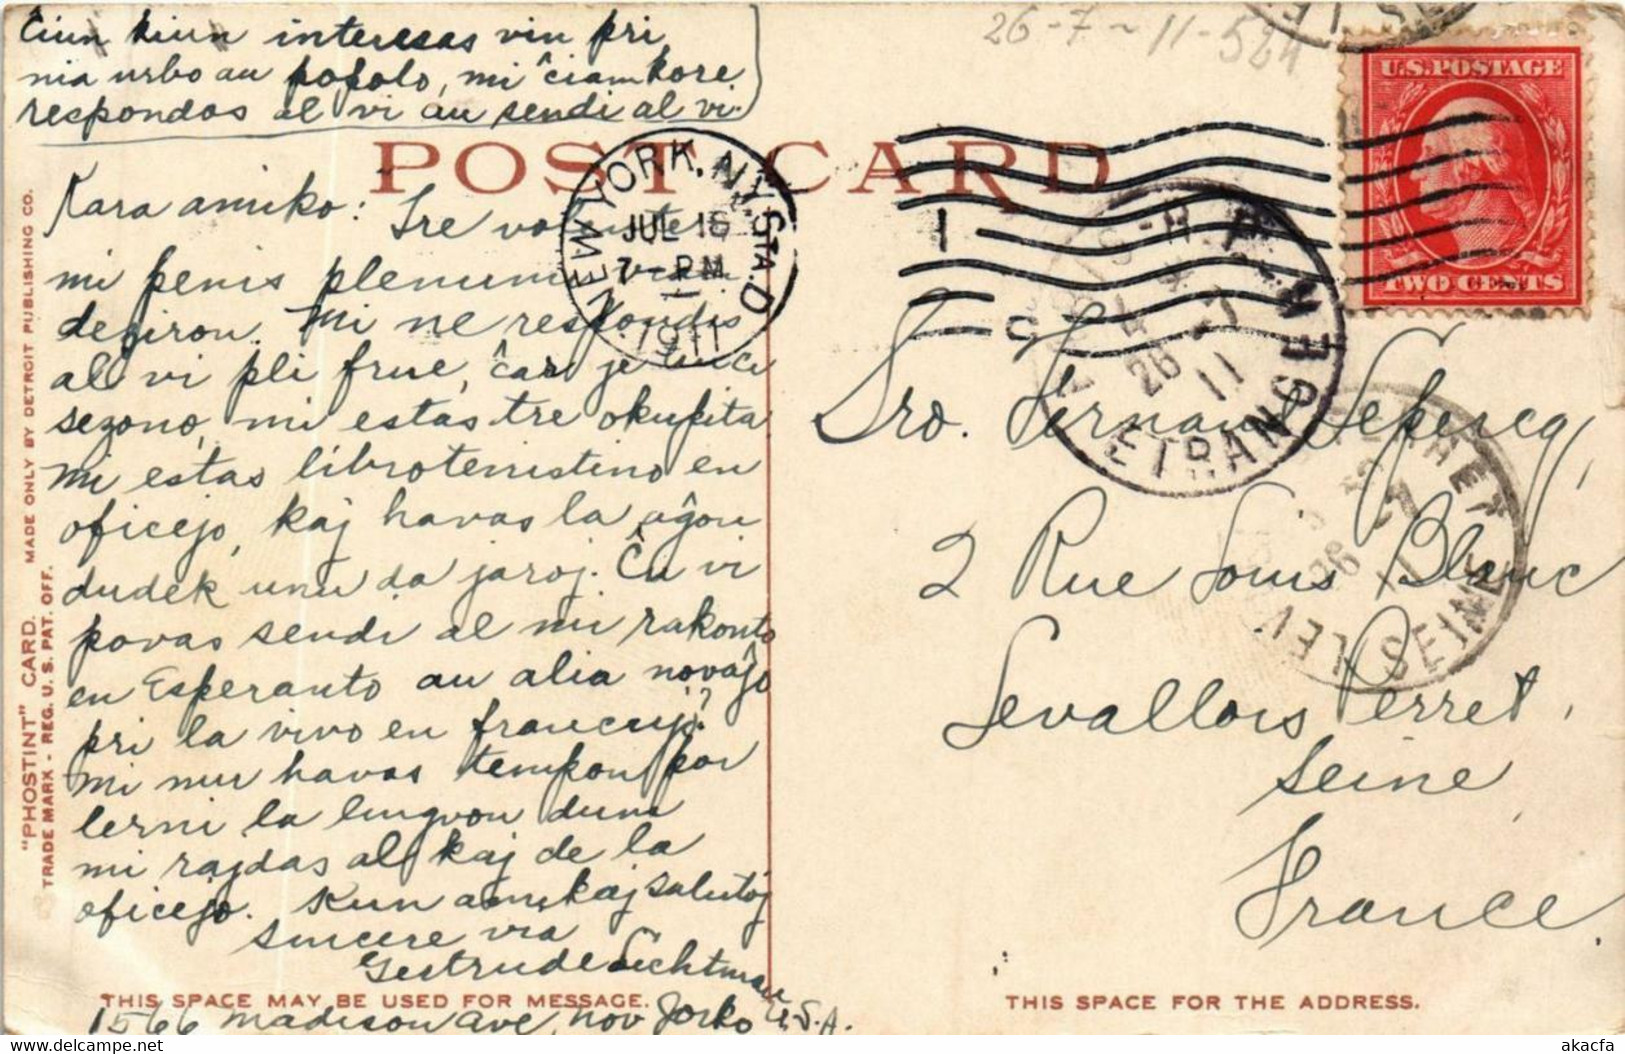 Ciun kiun interesas vin pri
mia urbo au popolo, mi ĉiamkore
respondos al vi au sendi al vi.
26-7-11-
POST CARD
U.S. POSTAGE
TWO CENTS
NEW YORK, N.Y. STA. D
JUL 16
7-PM
1911
ETRANGER
26
11
Kara amiko: Tre volonte
mi penis plenumi vian
deziron. Mi ne respondis
al vi pli frue, ĉar je
sezono, mi estas tre okupita
mi estas librotenistino en
oficejo, kaj havas la aĝon
dudek unu da jaroj. Ĉu vi
povas sendi al mi rakonto
en Esperanto au alia novaĵo
pri la vivo en francujo?
mi nur havas tempon por
lerni la lingvon dum
mi rajdas al kaj de la
oficejo. Kun amikaj salutoj
sincere via
Gertrude Lichtman
1566 Madison Ave, Nov Jorko U.S.A.
Sro. Fernand Lepercq,
2 Rue Louis Blanc
Levallois Perret,
Seine
France.
LEV
SEINE
"PHOSTINT" CARD. MADE ONLY BY DETROIT PUBLISHING CO.
TRADE MARK - REG. U. S. PAT. OFF.
THIS SPACE MAY BE USED FOR MESSAGE.
THIS SPACE FOR THE ADDRESS.
akacfa